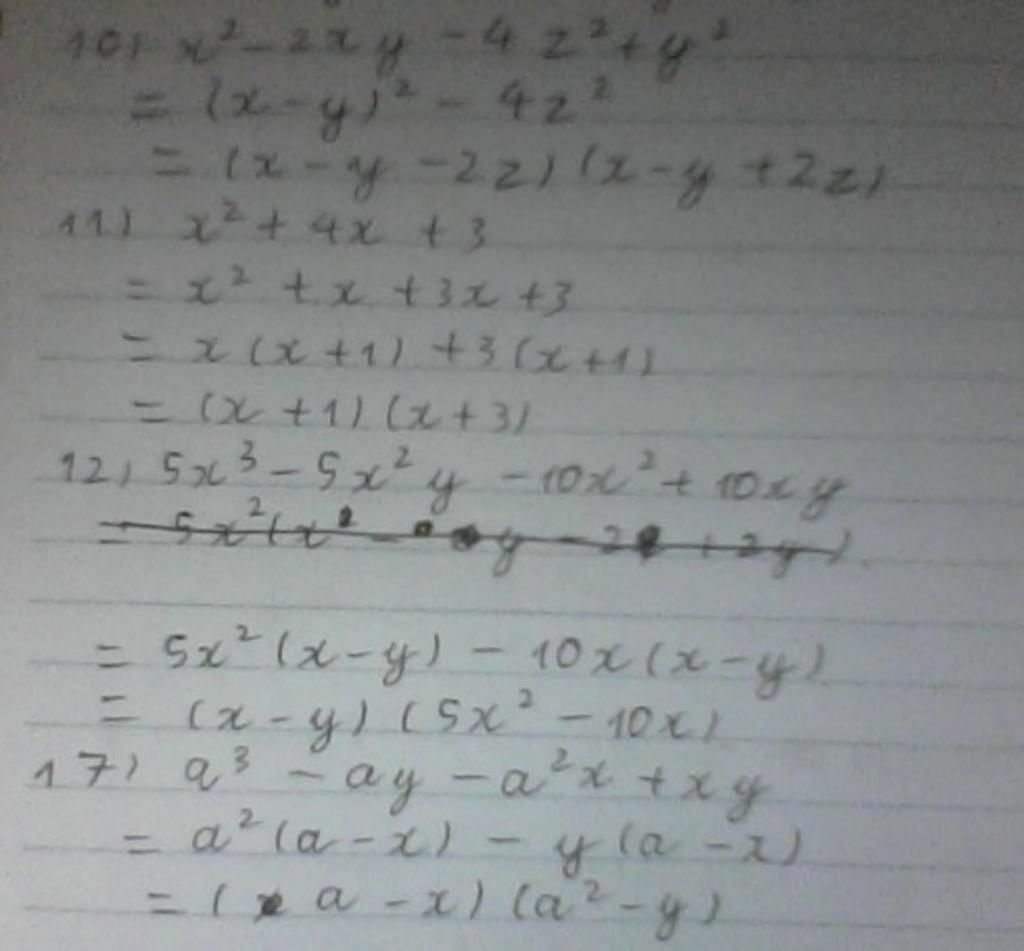 10) x² - 2xy - 4z² + y²
= (x - y)² - 4z²
= (x - y - 2z) (x - y + 2z)
11) x² + 4x + 3
= x² + x + 3x + 3
= x (x + 1) + 3 (x + 1)
= (x + 1) (x + 3)
12) 5x³ - 5x²y - 10x² + 10xy
= 5x² (x - y) - 10x (x - y)
= (x - y) (5x² - 10x)
17) a³ - ay - a²x + xy
= a² (a - x) - y (a - x)
= (a - x) (a² - y)